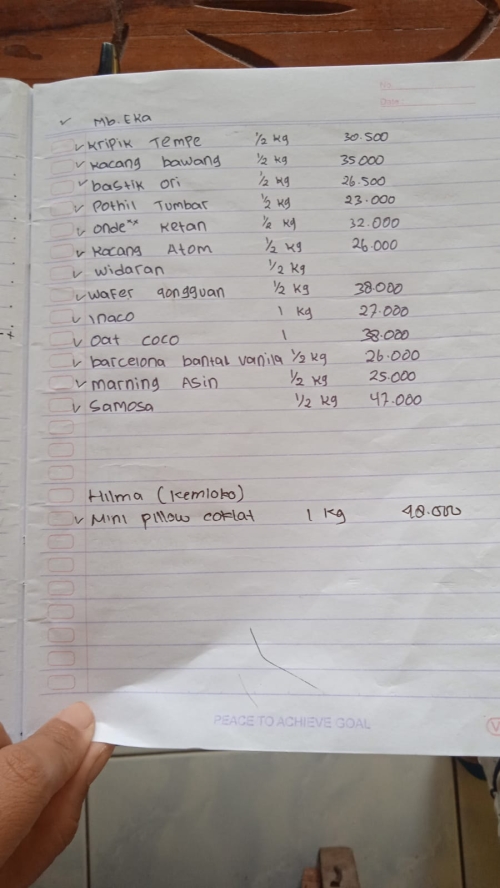 No.
Date:
Mb. Eka
Kripik Tempe 1/2 kg 30.500
Kacang bawang 1/2 kg 35.000
bastik ori 1/2 kg 26.500
Pothil Tumbar 1/2 kg 23.000
onde" Ketan 1/2 kg 32.000
Kacang Atom 1/2 kg 26.000
widaran 1/2 kg
wafer gongguan 1/2 kg 38.000
inaco 1 kg 27.000
oat coco 1 38.000
barcelona bantal vanila 1/2 kg 26.000
marning Asin 1/2 kg 25.000
Samosa 1/2 kg 47.000
Hilma (Kemloko)
Mini pillow coklat 1 kg 48.000
PEACE TO ACHIEVE GOAL